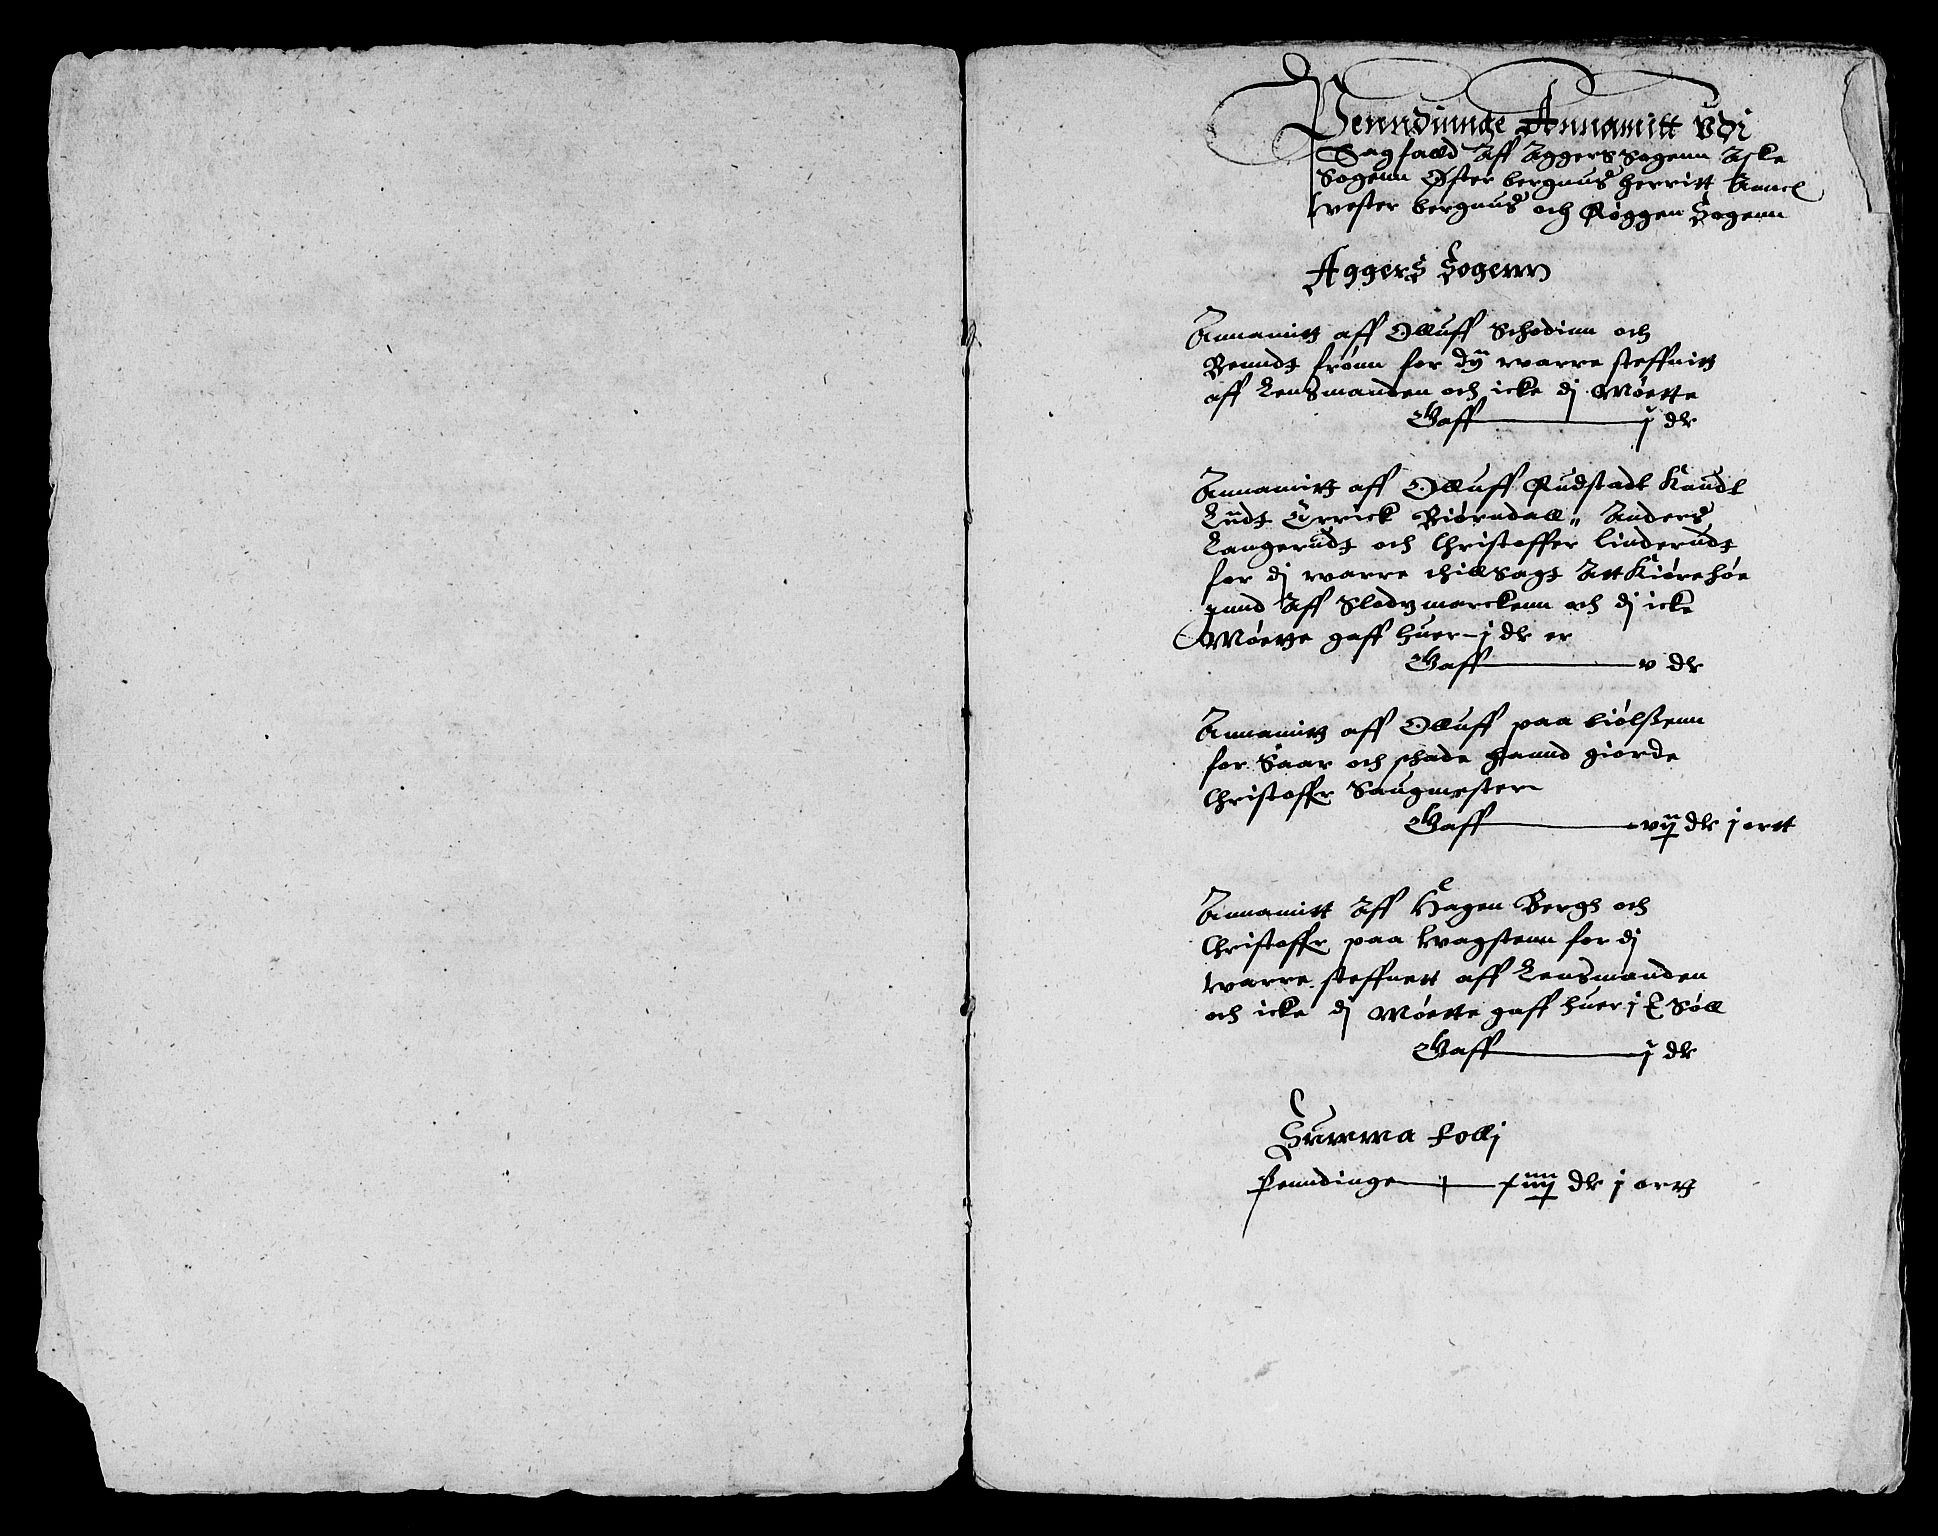 Penndinnge Annamitt Vdi
Sagfald Aff Aggers Sogenn Aske
Sogenn Øster bergnus herritt
Vester bergnus och Røggen Sogenn
Aggers Sogenn
Annamitt aff Olluff Schodinn och
Benndt frønn for dij warre steffnitt
aff Lensmanden och icke dj Møette
Gaff j dlr
Annamitt aff Olluff Rudstadt Knudt
Lundt Errick Biørndall Anders
Langerudt och Christoffer Linderudt
for dj warre thillsagt Att Kiøre høe
innd Aff Slodtzmarckenn och dj icke
Møette gaff huer j dlr er
Gaff v dlr
Annamitt aff Olluff paa Liølsenn
for Saar och schade hannd giorde
Christoffer Saugmester
Gaff vij dlr j ortt
Annamitt Aff Hagen Bergh och
Christoffer paa Wagstenn for dj
warre steffnett aff Lensmanden
och icke dj Møette gaff huer j Søll
Gaff j dlr
Summa follj
Penndinge xiiij dlr j ortt